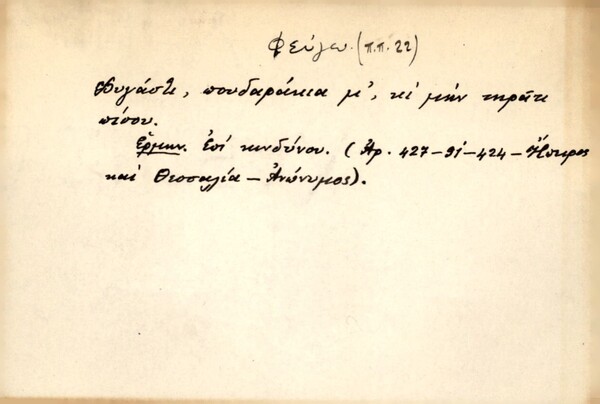 Φεύγω (π.π. 22)
Φυγάστε, πουδαράκια μ', κι μήν τηράτε
πίσου.
Ἑρμην. Ἐπί κινδύνου. (Ἀρ. 427-91-424-Ἤπειρος
καί Θεσσαλία - Ἀνώνυμος).